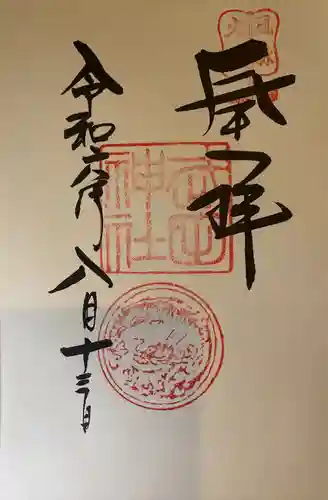 奉拝
令和六年
八月十三日
神社